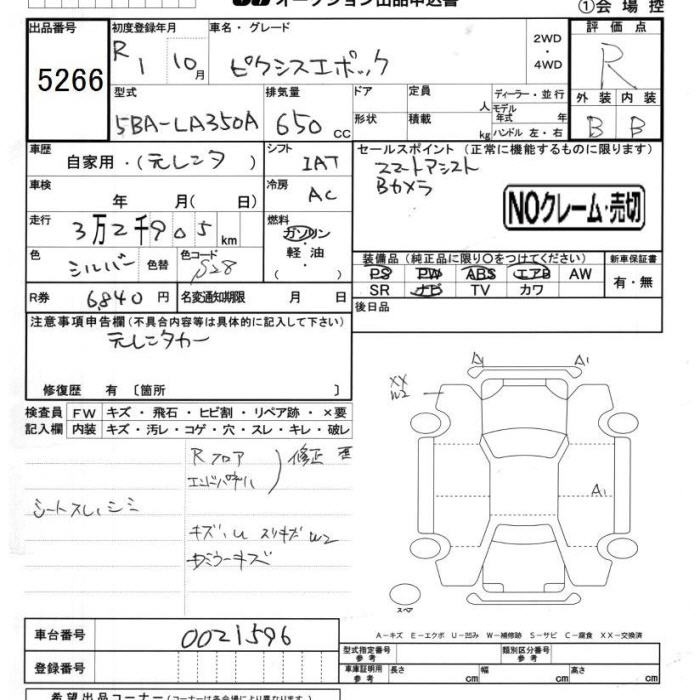 オークション出品申込書
①会場控
出品番号
5266
初度登録年月
R1 10月
車名・グレード
ピクシスエポック
2WD
・
4WD
評価点
R
外装 内装
B B
型式
5BA-LA350A
排気量
650 cc
ドア
定員
人
形状
積載
kg
ディーラー・並行
モデル年式 年
ハンドル 左・右
車歴
自家用・(元レンタ)
シフト
IAT
車検
年 月( 日)
冷房
AC
走行
3万2千905km
燃料
ガソリン
・
軽油
・
( )
色
シルバー
色替
色コード
S28
R券 6,840円
名変通知期限 月 日
セールスポイント (正常に機能するものに限ります)
スマートアシスト
Bカメラ
NOクレーム・売切
装備品(純正品に限り〇をつけてください)
PS PW ABS エアB AW
SR ナビ TV カワ
新車保証書
有・無
後日品
注意事項申告欄(不具合内容等は具体的に記入して下さい)
元レンタカー
修復歴 有 〔箇所 〕
検査員記入欄
FW キズ・飛石・ヒビ割・リペア跡・×要
内装 キズ・汚レ・コゲ・穴・スレ・キレ・破レ
Rフロア
エンドパネル
修正
シートスレ、シミ
キズ、U スリキズ W2
ミラーキズ
A1
A1
XX
W2
A1
スペア
A-キズ E-エクボ U-凹み W-補修跡 S-サビ C-腐食 XX-交換済
車台番号
0021596
登録番号
型式指定番号
参考
類別区分番号
参考
車庫証明用
参考
長さ cm
幅 cm
高さ cm
希望出品コーナー(コーナーは各会場により異なります。)